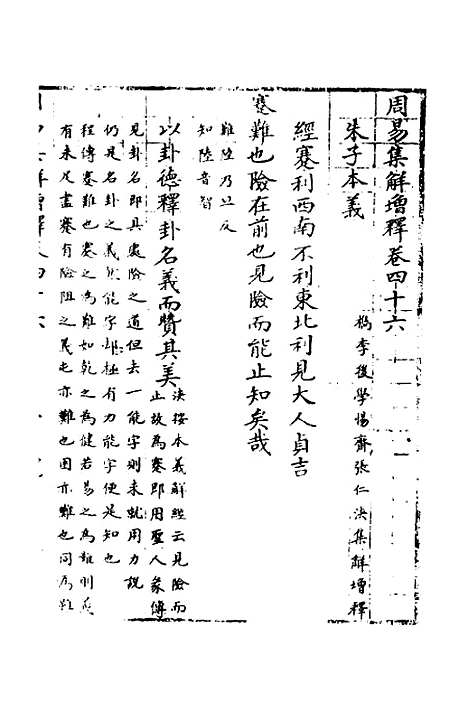 周易集解增釋卷四十六
朱子本義
檇李後學惕齋張仁浹集解增釋
經蹇利西南不利東北利見大人貞吉
蹇難也險在前也見險而能止知矣哉
難陸乃旦反
知陸音智
以卦德釋卦名義而贊其美浹按本義解經云見險而
止故為蹇即用聖人彖傳
見卦名即具處險之道但去一能字則未就用力說
仍是名卦之義能字却極有力能字便是知也
程傳蹇難也蹇之為難如乾之為健若易之為難則義
有未足盡蹇有險阻之義屯亦難也困亦難也同為難